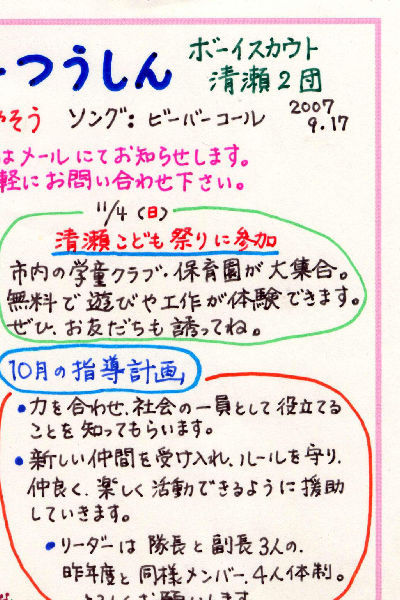 つうしん
ボーイスカウト
清瀬2団
2007
9.17
そう ソング:ビーバーコール
はメールにてお知らせします。
軽にお問い合わせ下さい。
11/4(日)
清瀬こども祭りに参加
市内の学童クラブ・保育園が大集合。
無料で遊びや工作が体験できます。
ぜひ、お友だちも誘ってね。
10月の指導計画
・力を合わせ、社会の一員として役立てる
ことを知ってもらいます。
・新しい仲間を受け入れ、ルールを守り、
仲良く、楽しく活動できるように援助
していきます。
・リーダーは隊長と副長3人の、
昨年度と同様メンバー、4人体制。